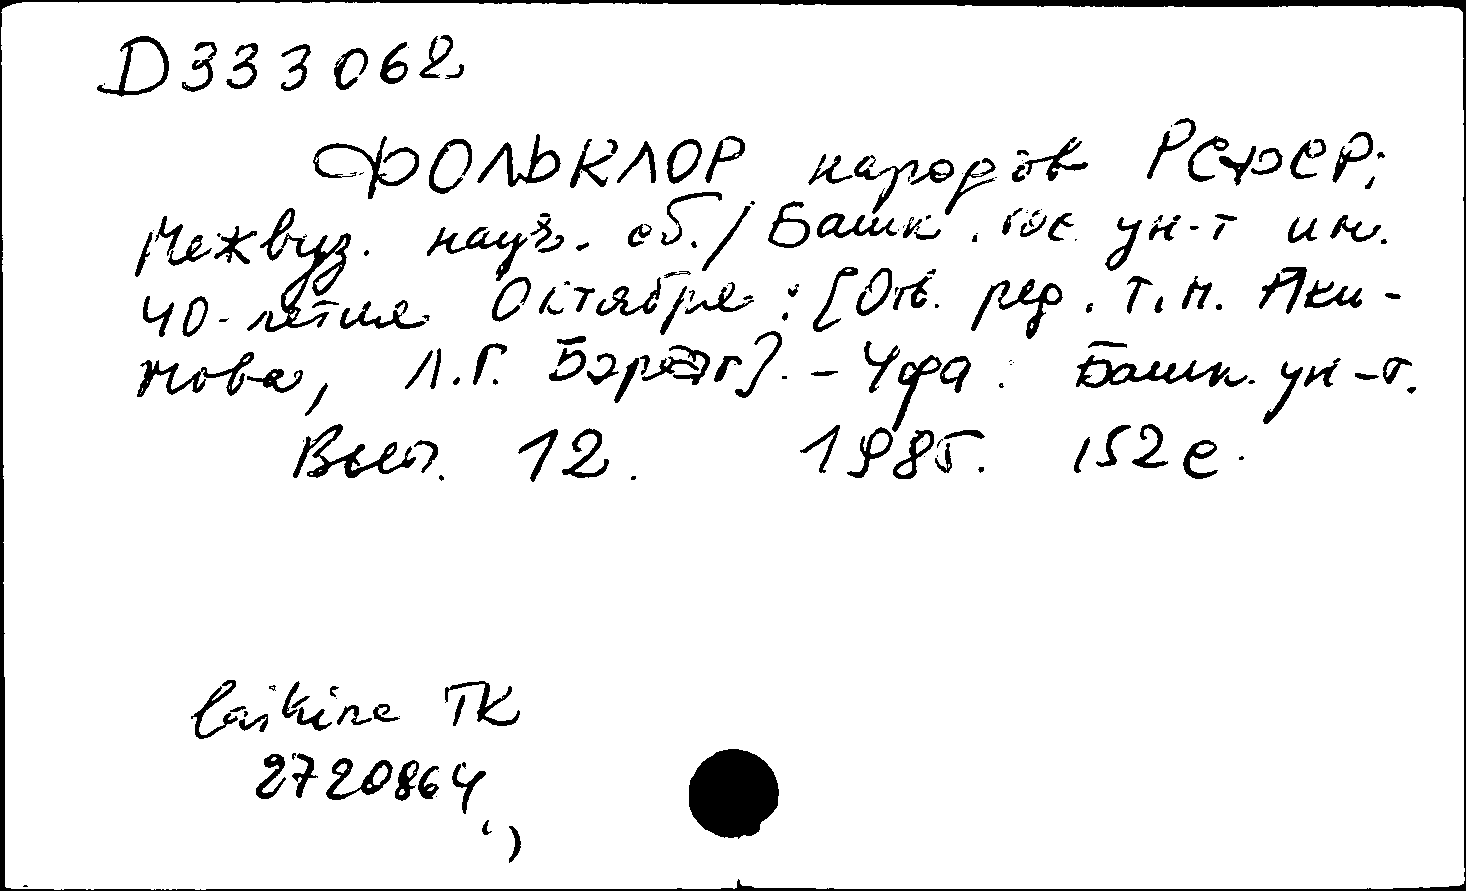 D333062
ФОЛЬКЛОР народов РСФСР;
Межвуз. науч. сб./ Башк. гос. ун-т им.
40-летия Октября: [Отв. ред. Т.М. Аки-
мова, Л.Г. Бараг]. - Уфа: Башк. ун-т.
Вып. 12. 1985. 152 с.
laikine TK
2720864